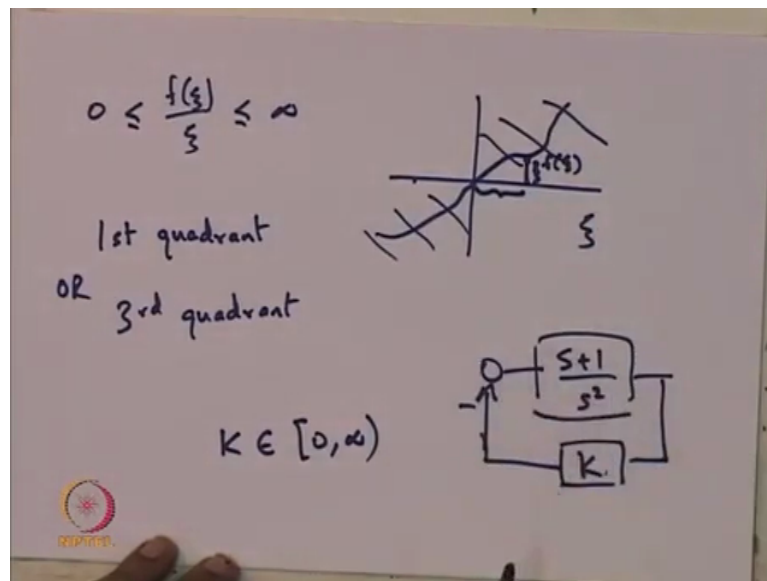 0 ≤ f(ξ)/ξ ≤ ∞
f(ξ)
ξ
1st quadrant
OR
3rd quadrant
S+1/s²
−
K ∈ [0,∞)
K
NPTEL